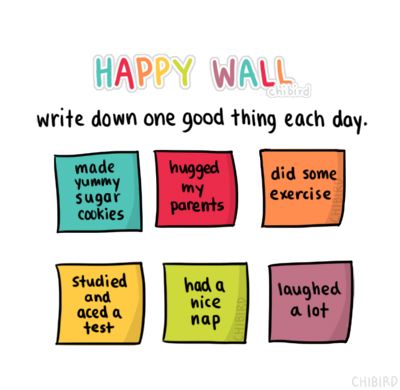 HAPPY WALL
chibird
write down one good thing each day.
made
yummy
sugar
cookies
hugged
my
parents
did some
exercise
CHIBIRD
studied
and
aced a
test
had a
nice
nap
CHIBIRD
laughed
a lot
CHIBIRD